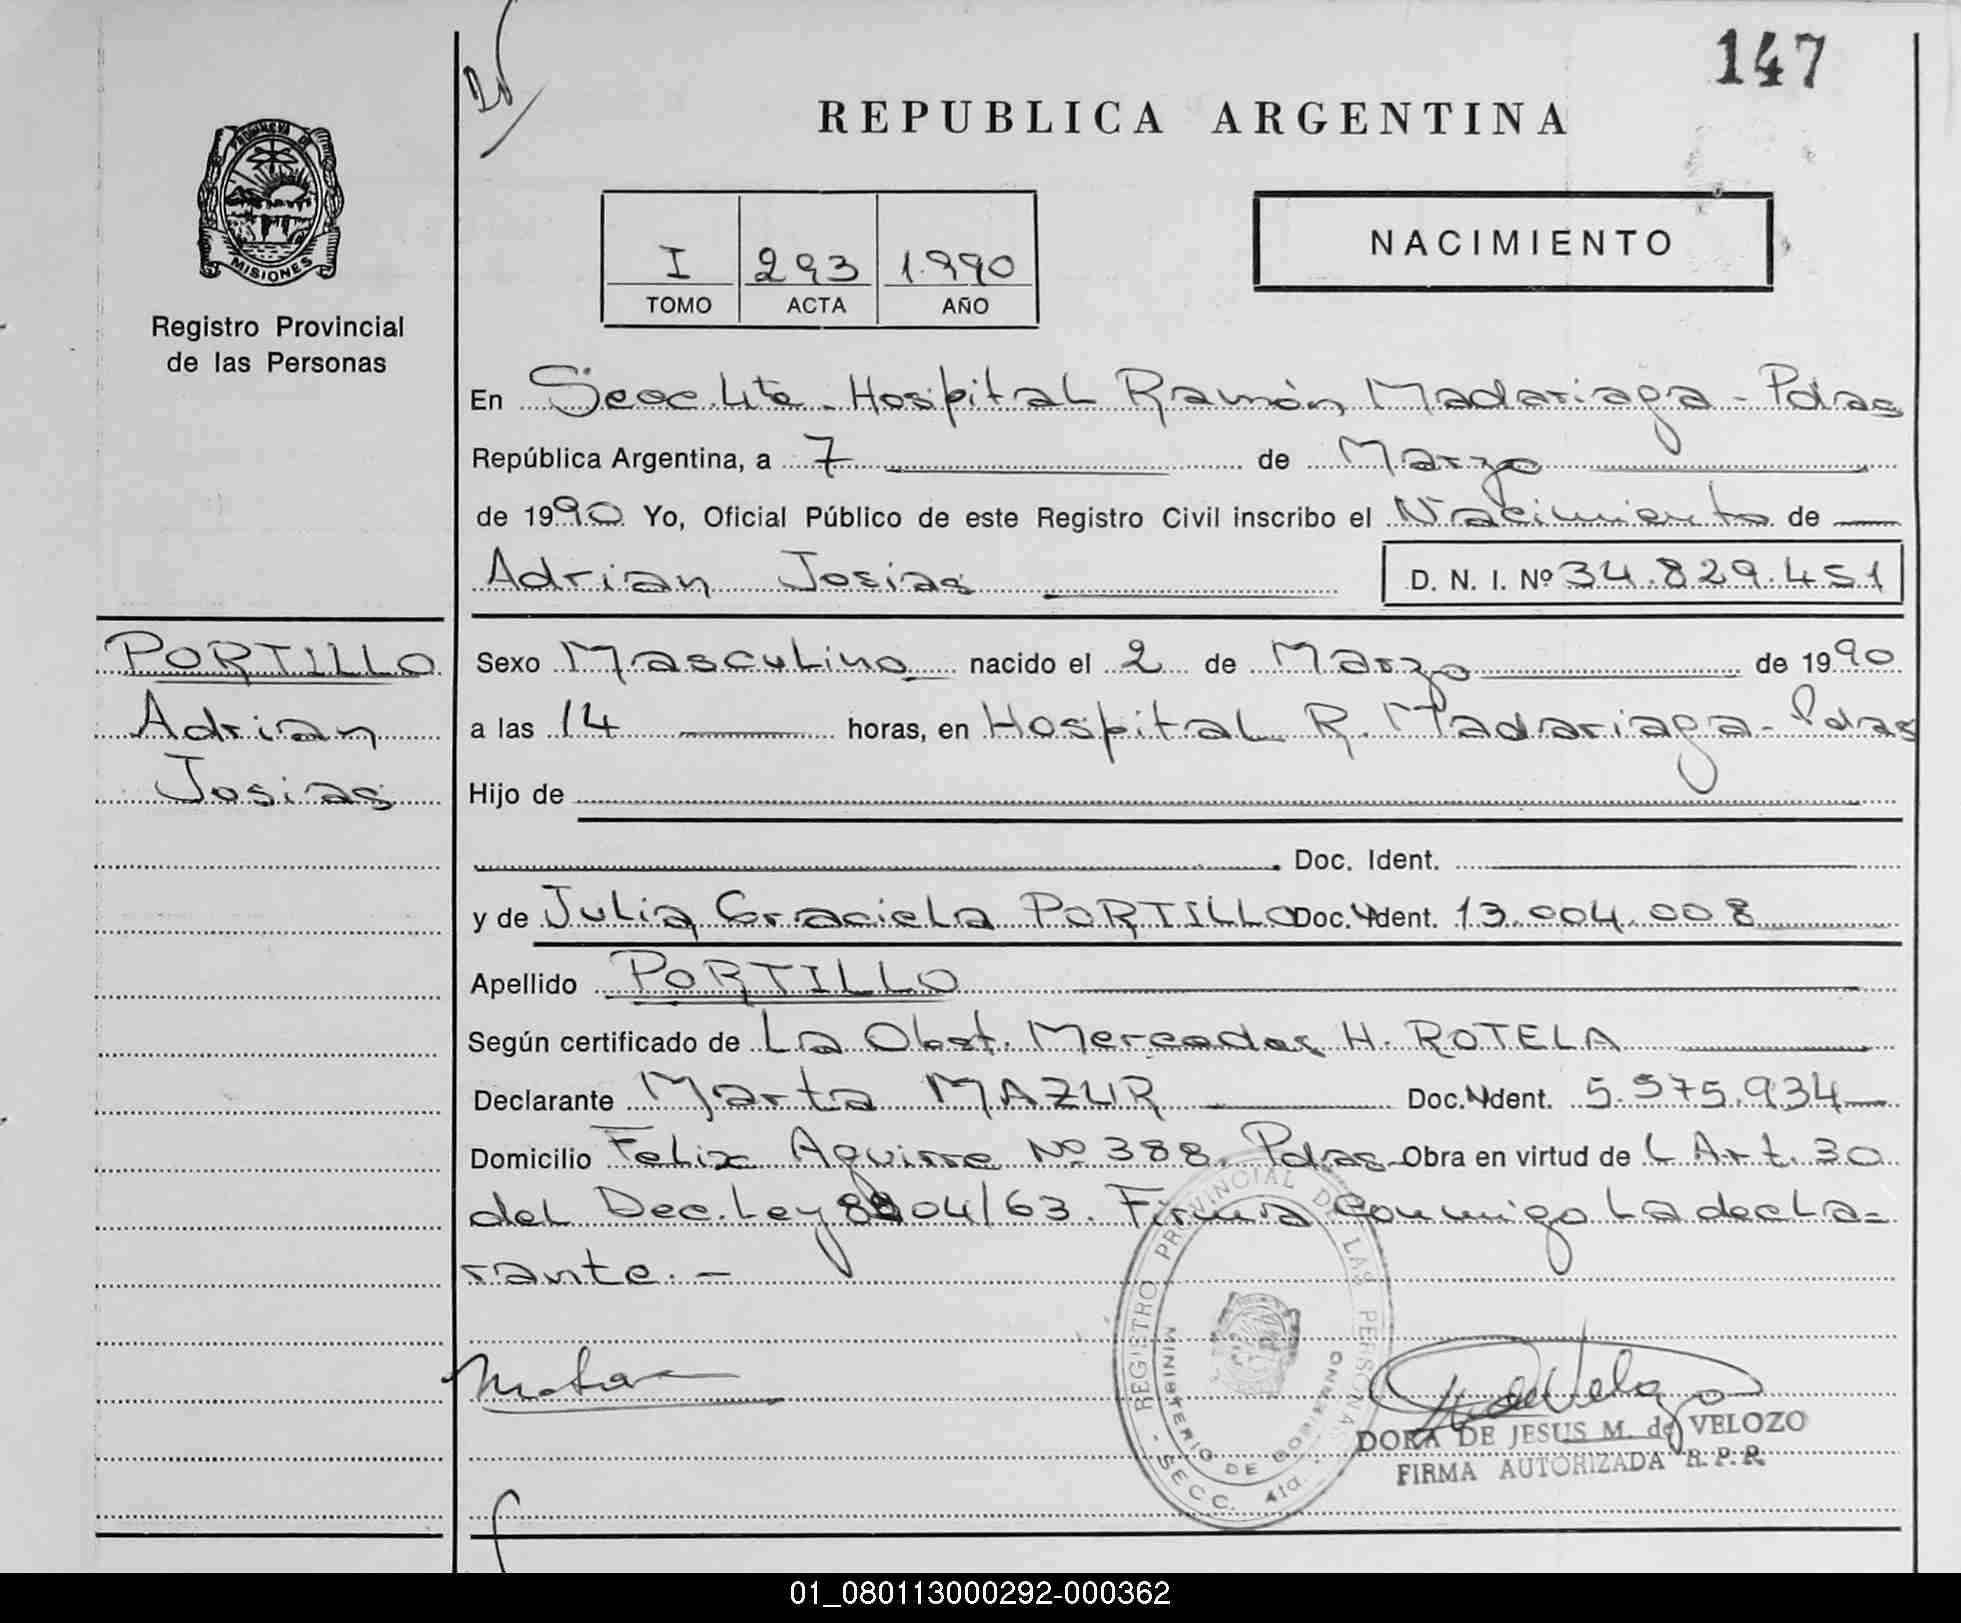 147
REPUBLICA ARGENTINA
PROVINCIA DE
MISIONES
Registro Provincial
de las Personas
I 293 1.990
TOMO ACTA AÑO
NACIMIENTO
En Secc. 4ta. Hospital Ramón Madariaga - Pdas
República Argentina, a 7 de Marzo
de 1990 Yo, Oficial Público de este Registro Civil inscribo el Nacimiento de
Adrian Josias D. N. I. Nº 34.829.451
PORTILLO
Adrian
Josias
Sexo Masculino nacido el 2 de Marzo de 1990
a las 14 horas, en Hospital R. Madariaga - Pdas
Hijo de
Doc. Ident.
y de Julia Graciela PORTILLO Doc. Ident. 13.004.008
Apellido PORTILLO
Según certificado de La Obst. Mercedes H. ROTELA
Declarante Marta MAZUR Doc. Ident. 5.575.934
Domicilio Felix Aguirre Nº 388. Pdas - Obra en virtud del Art. 30
del Dec. Ley 8204/63. Firma Conmigo La decla=
rante. -
REGISTRO PROVINCIAL DE LAS PERSONAS
MINISTERIO DE GOBIERNO
- SECC. 4ta. -
DORA DE JESUS M. de VELOZO
FIRMA AUTORIZADA R. P. P.
01_080113000292-000362